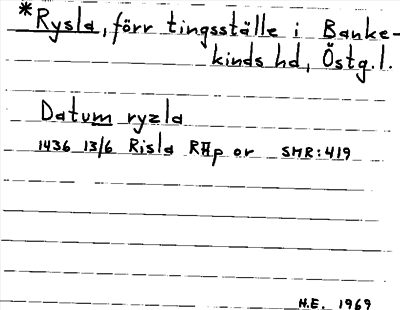 *Rysla, förr tingsställe i Banke-
kinds hd, Östg.l.
Datum ryzla
1436 13/6 Risla or SMR:419
H.E. 1969